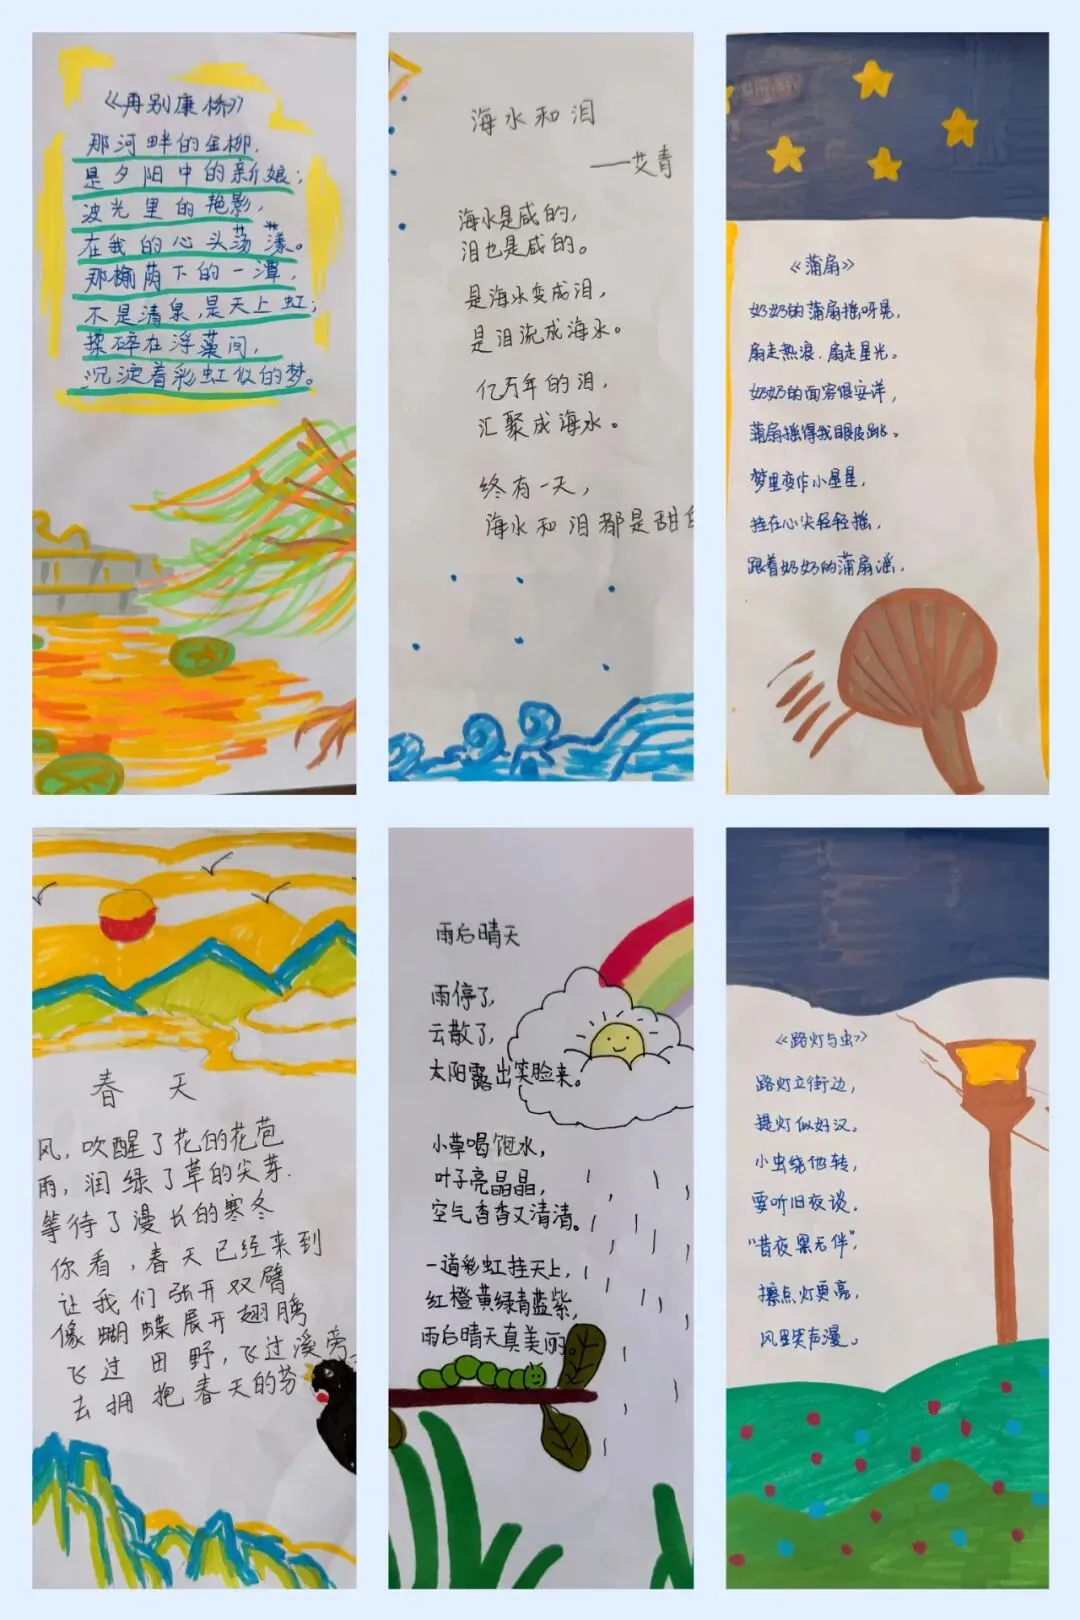 《再别康桥》
那河畔的金柳，
是夕阳中的新娘；
波光里的艳影，
在我的心头荡漾。
那榆荫下的一潭，
不是清泉，是天上虹；
揉碎在浮藻间，
沉淀着彩虹似的梦。
海水和泪
——艾青
海水是咸的，
泪也是咸的。
是海水变成泪，
是泪流成海水。
亿万年的泪，
汇聚成海水。
终有一天，
海水和泪都是甜
《蒲扇》
奶奶的蒲扇摇呀晃，
扇走热浪，扇走星光。
奶奶的面容很安详，
蒲扇摇得我眼皮跳。
梦里变作小星星，
挂在心尖轻轻摇，
跟着奶奶的蒲扇谣，
春 天
风，吹醒了花的花苞
雨，润绿了草的尖芽.
等待了漫长的寒冬
你看，春天已经来到
让我们张开双臂
像蝴蝶展开翅膀
飞过田野，飞过溪旁
去拥抱春天的芬
雨后晴天
雨停了，
云散了，
太阳露出笑脸来。
小草喝饱水，
叶子亮晶晶，
空气香香又清清。
一道彩虹挂天上，
红橙黄绿青蓝紫，
雨后晴天真美丽。
《路灯与虫》
路灯立街边，
提灯似好汉。
小虫绕他转，
要听旧夜谈。
“昔夜黑无伴”，
擦点灯更亮，
风里笑声漫。